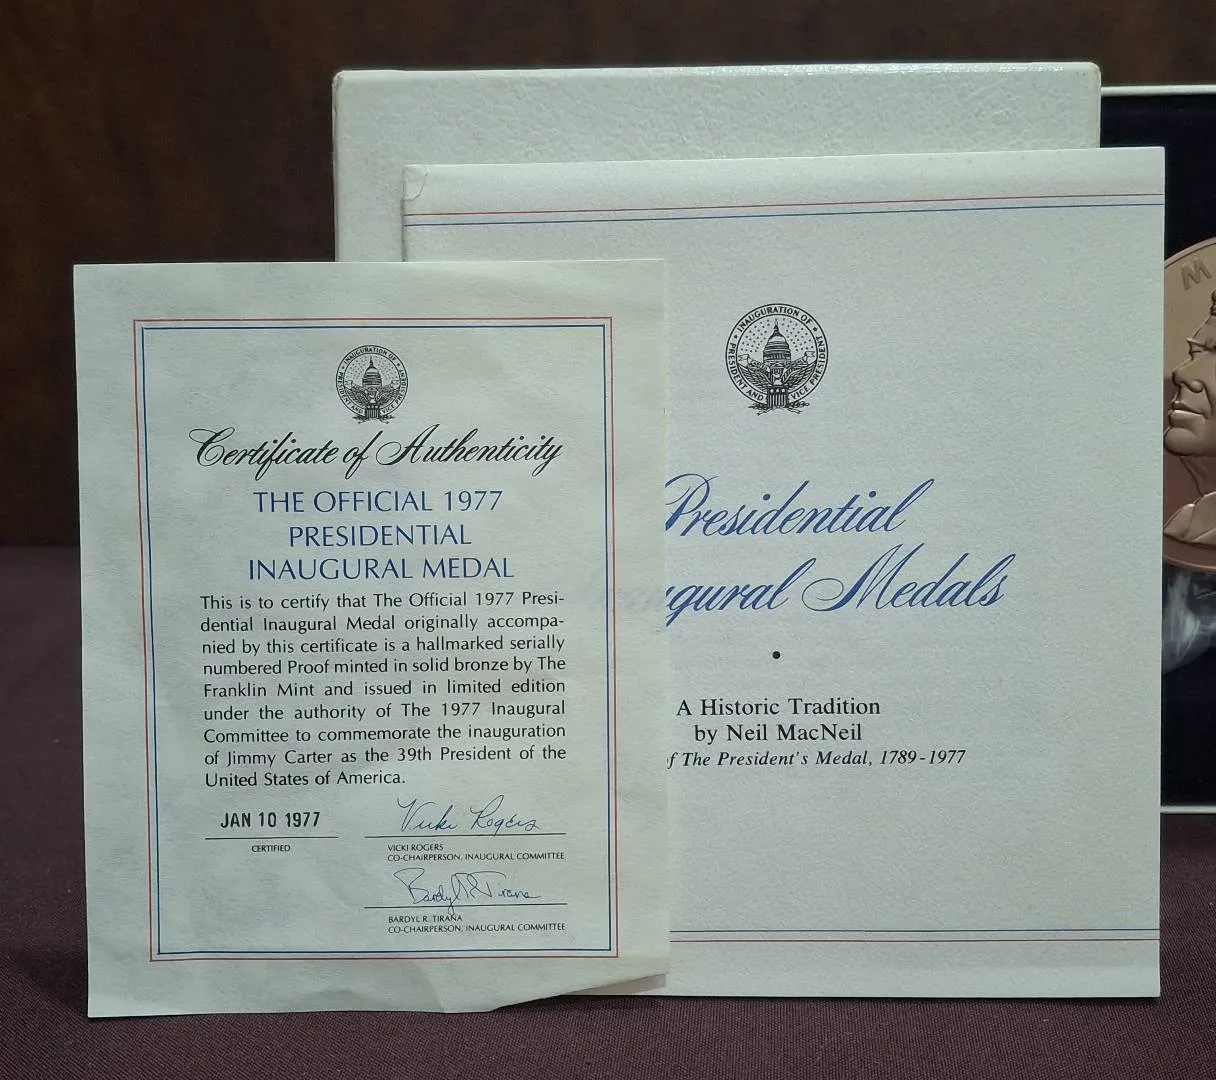 INAUGURATION OF
PRESIDENT AND VICE PRESIDENT
Certificate of Authenticity
THE OFFICIAL 1977
PRESIDENTIAL
INAUGURAL MEDAL
This is to certify that The Official 1977 Presi-
dential Inaugural Medal originally accompa-
nied by this certificate is a hallmarked serially
numbered Proof minted in solid bronze by The
Franklin Mint and issued in limited edition
under the authority of The 1977 Inaugural
Committee to commemorate the inauguration
of Jimmy Carter as the 39th President of the
United States of America.
JAN 10 1977
CERTIFIED
Vicki Rogers
VICKI ROGERS
CO-CHAIRPERSON, INAUGURAL COMMITTEE
Bardyl R. Tirana
BARDYL R. TIRANA
CO-CHAIRPERSON, INAUGURAL COMMITTEE
INAUGURATION OF
PRESIDENT AND VICE PRESIDENT
Presidential
gural Medals
•
A Historic Tradition
by Neil MacNeil
f The President's Medal, 1789-1977
M